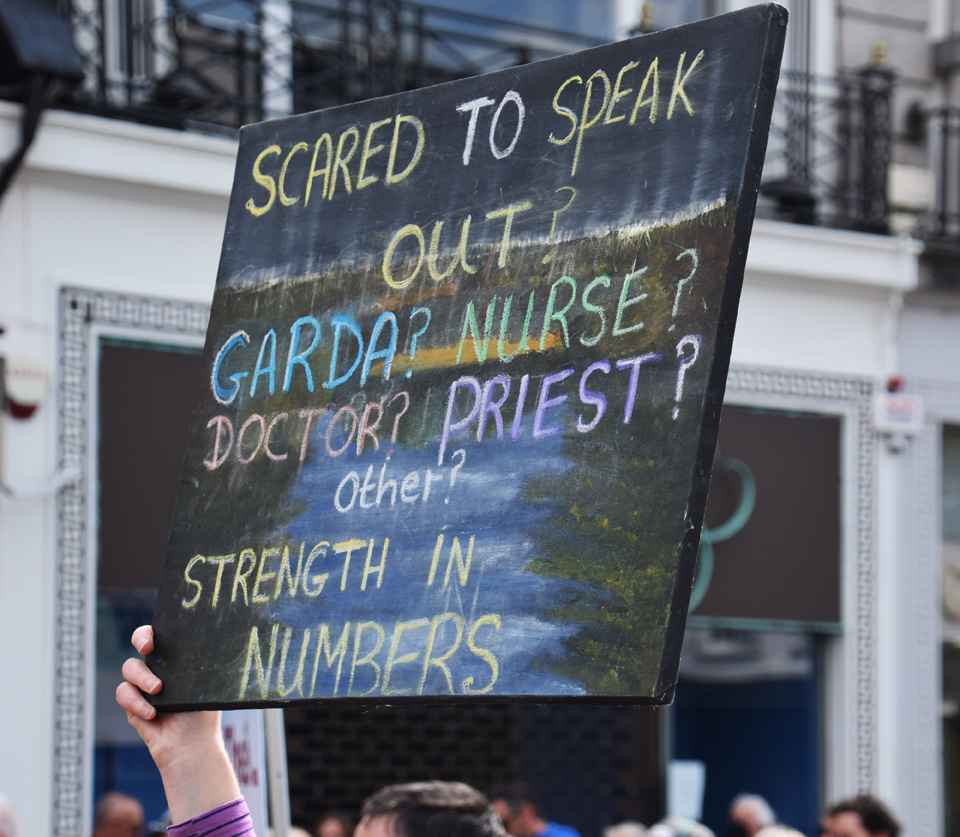 SCARED TO SPEAK
OUT?
GARDA? NURSE?
DOCTOR? PRIEST?
other?
STRENGTH IN
NUMBERS